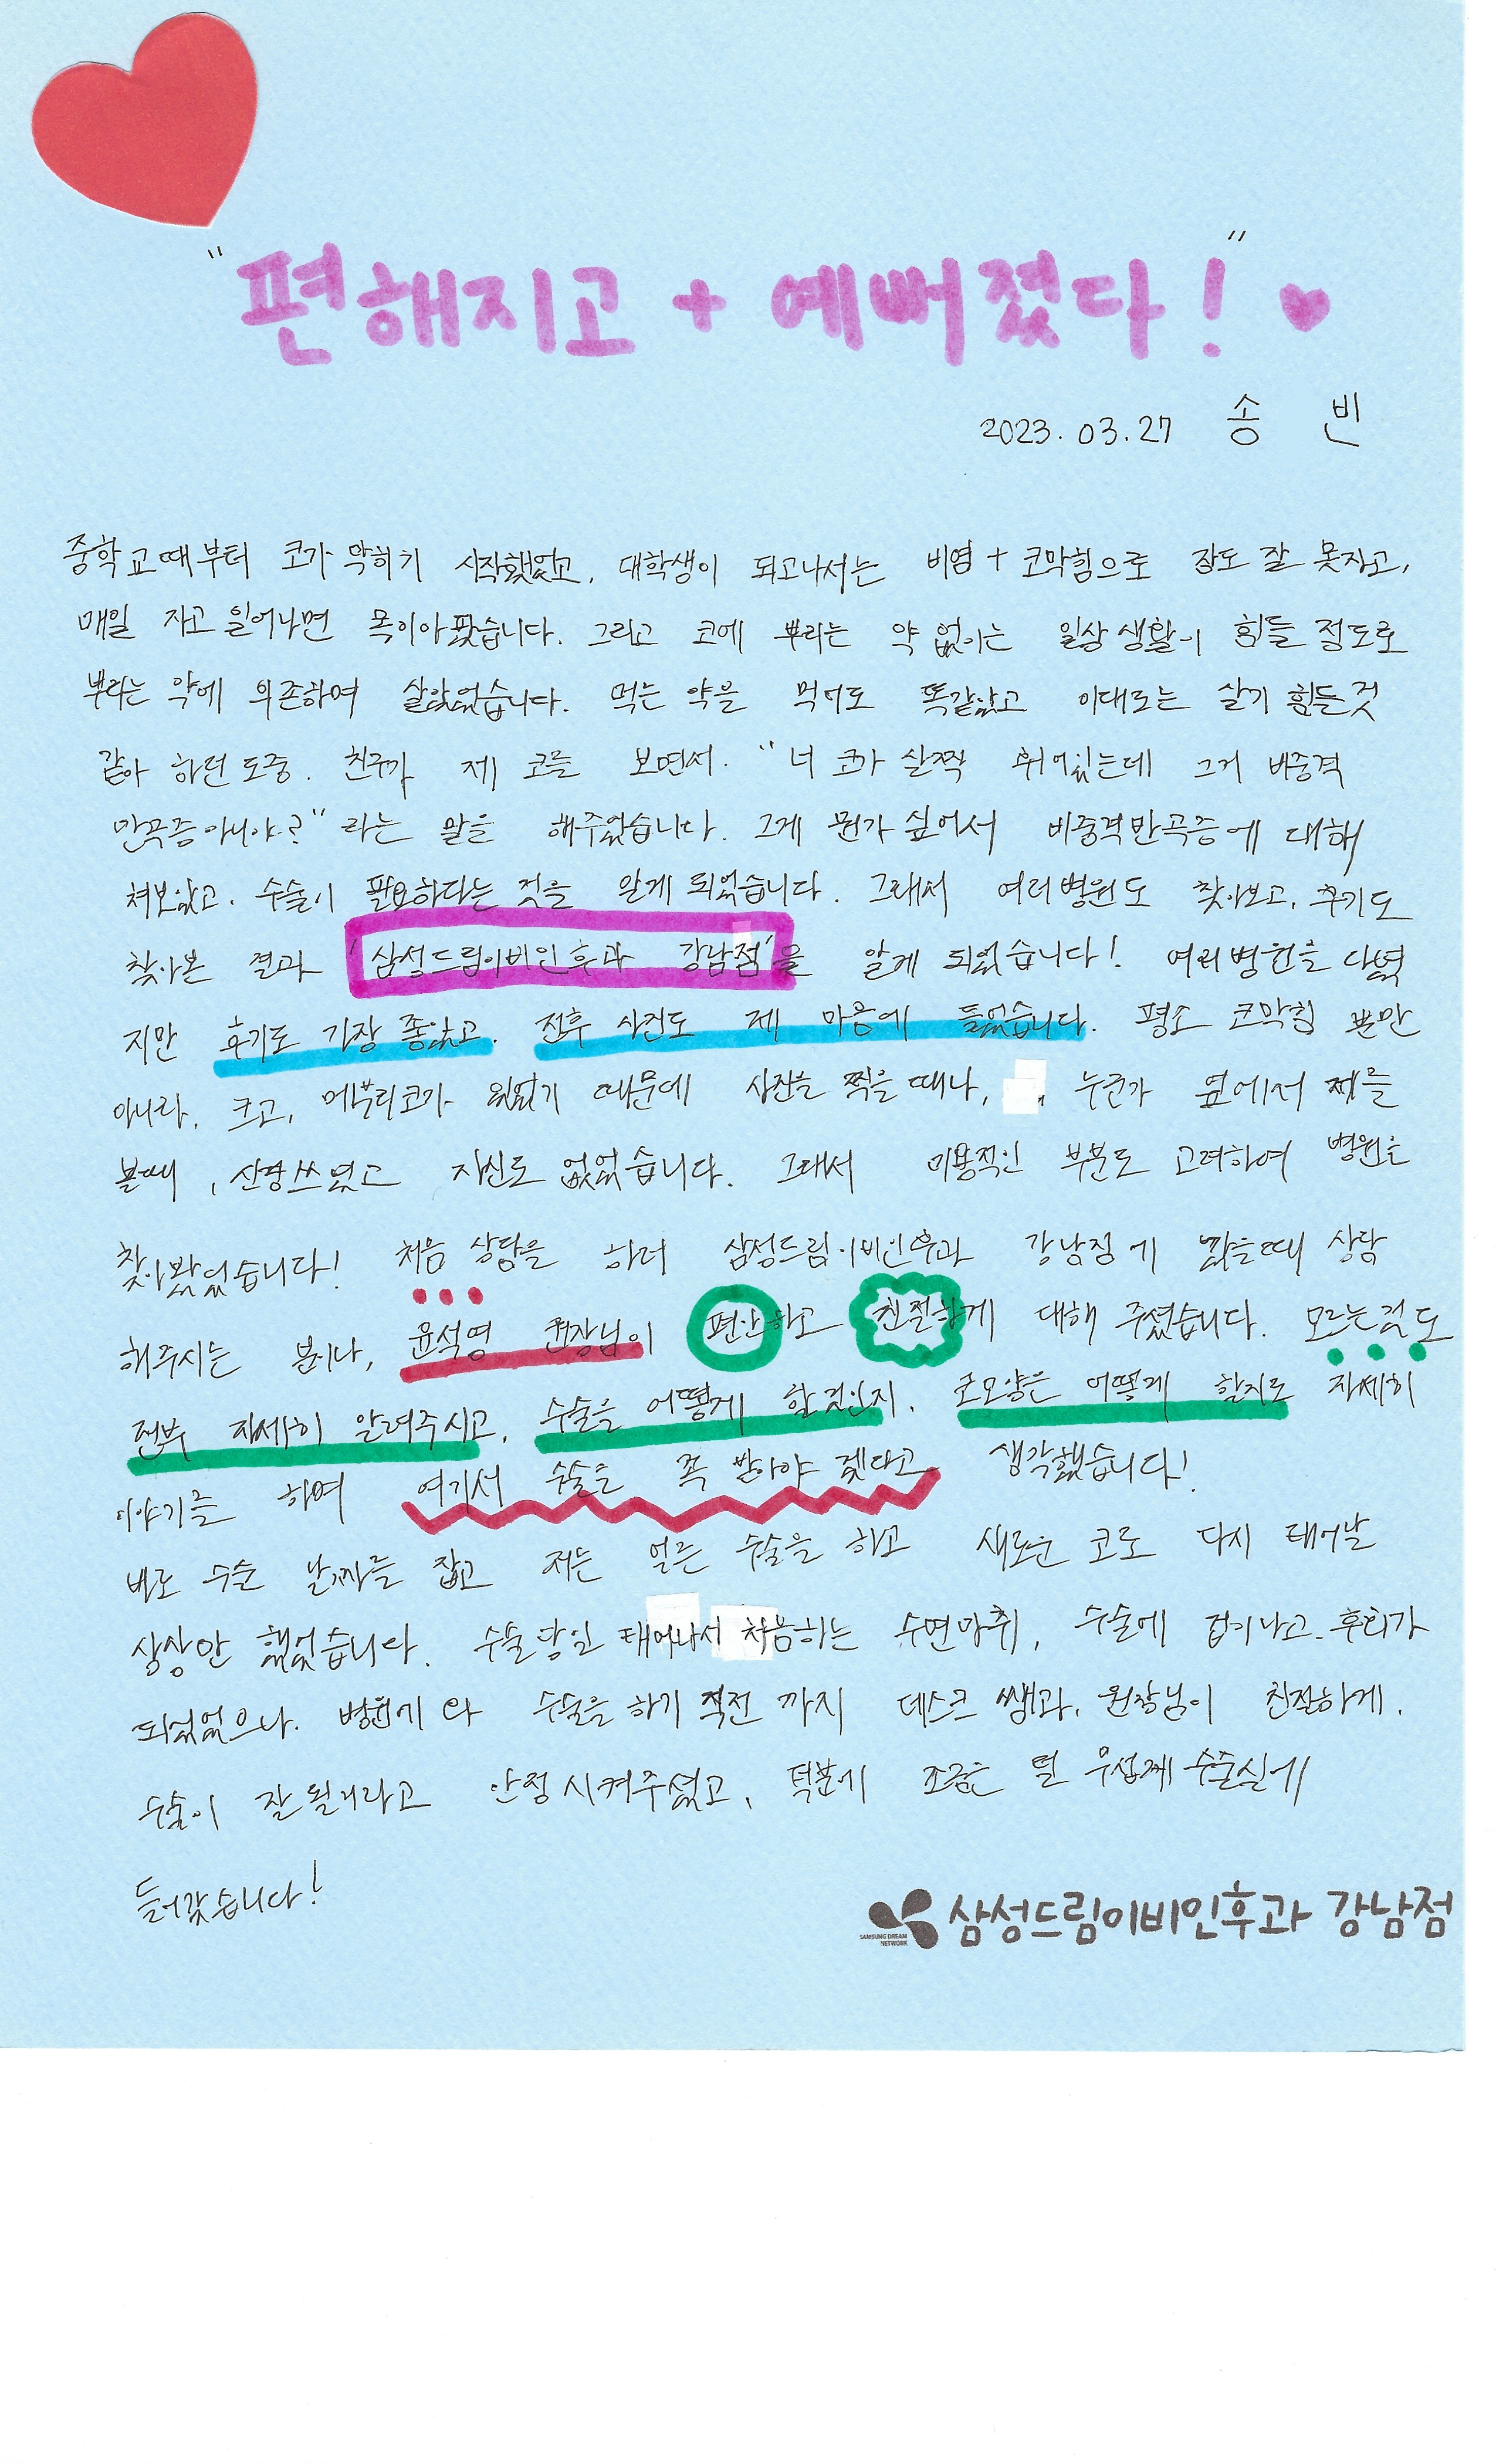 "편해지고 + 예뻐졌다!"
2023. 03. 27 송 빈
중학교때부터 코가 막히기 시작했었고, 대학생이 되고나서는 비염 + 코막힘으로 잠도 잘 못자고,
매일 자고 일어나면 목이아팠습니다. 그리고 코에 뿌리는 약 없이는 일상생활이 힘들 정도로
뿌리는 약에 의존하여 살았었습니다. 먹는 약을 먹어도 똑같았고 이대로는 살기 힘든것
같아 하던 도중. 친구가 제 코를 보면서. "너 코가 살짝 휘어있는데 그거 비중격
만곡증아니야?" 라는 말을 해주었습니다. 그게 뭔가 싶어서 비중격만곡증에 대해
쳐보았고. 수술이 필요하다는 것을 알게 되었습니다. 그래서 여러병원도 찾아보고, 후기도
찾아본 결과 '삼성드림이비인후과 강남점'을 알게 되었습니다! 여러병원을 다녔
지만 후기도 가장 좋았고. 전후 사진도 제 마음에 들었습니다. 평소 코막힘 뿐만
아니라. 크고, 메부리코가 있었기 때문에 사진을 찍을때나, 누군가 옆에서 쩨를
볼때, 신경쓰였고 자신도 없었습니다. 그래서 미용적인 부분도 고려하여 병원을
찾아봤었습니다! 처음 상담을 하러 삼성드림이비인후과 강남점에 갔을때 상담
해주시는 분이나, 윤석영 원장님이 편안하고 친절하게 대해 주셨습니다. 모르는것도
전부 자세히 알려주시고, 수술을 어떻게 할것인지. 코모양은 어떻게 할지도 자세히
이야기를 하며 여기서 수술을 꼭 받아야 겠다고 생각했습니다!
바로 수술 날짜를 잡고 저는 얼른 수술을 하고 새로운 코로 다시 태어날
상상만 했었습니다. 수술당일 태어나서 처음하는 수면마취, 수술에 겁이나고 후회가
되었었으나. 병원에 와 수술을 하기 직전 까지 데스크 쌤과, 원장님이 친절하게.
수술이 잘될거라고 안정시켜주셨고, 덕분에 조금은 덜 무섭게 수술실에
들어갔습니다!
SAMSUNG DREAM NETWORK 삼성드림이비인후과 강남점